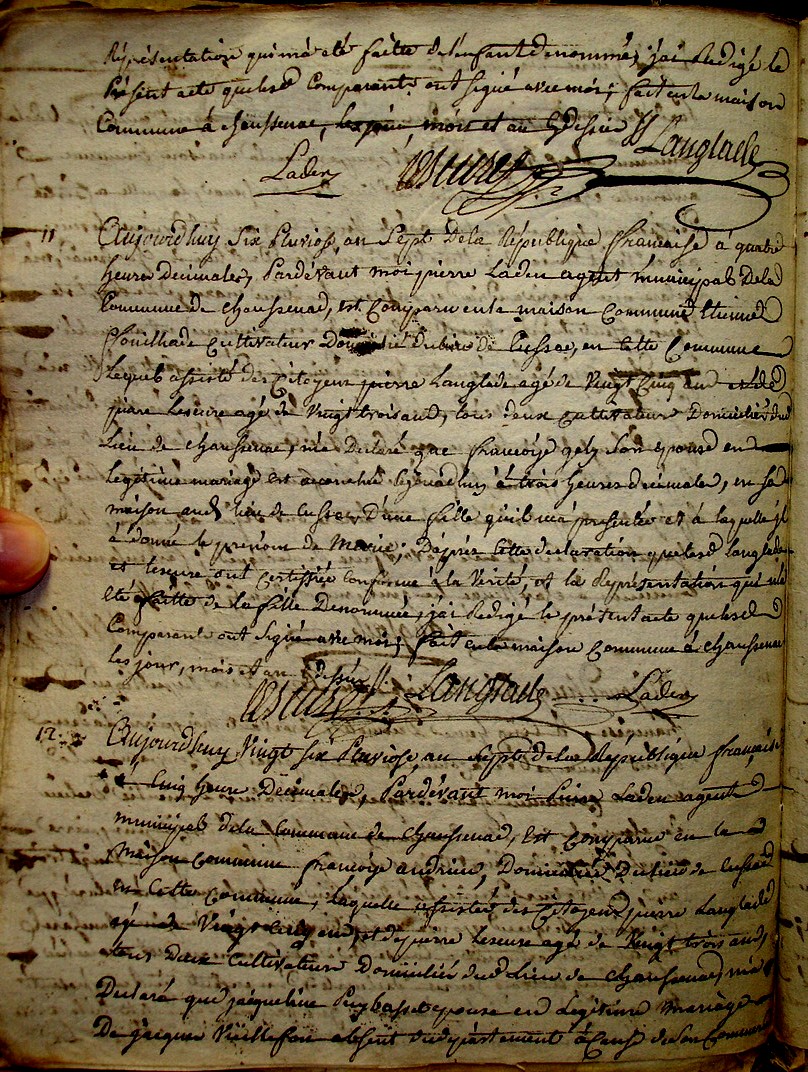 Représentation qui m'a eté faitte de l'enfant denommé, j'ai Redigé le
Présent acte que lesd Comparants ont signé avec moi; fait en la maison
Commune à chaussenac, les jour mois et an susdessus Langlade
Laden Leseure
11 Aujourdhuy Six Pluviose, an Sept De la République francaise à quatre
heures Decimales, Pardevant moi pierre Laden agent municipal De la
Commune De chaussenac, est Comparu en la maison Commune Etienne
Souilhade Cultivateur Domicilié Du lieu De Cussac, en Cette Commune
Lequel assisté des Citoyens pierre Langlade agé de Vingt Cinq ans et de
pierre Leseure agé de Vingt trois ans, tous deux Cultivateurs Domiciliés dud
Lieu de chaussenac, m'a Declaré que francoise gely Son epouse en
Legitime mariage est accouchée aujourdhuy à trois heures decimales, en sa
maison aud lieu de Cussac, D'une fille qu'il m'a presentée et à laquelle il
à donné le prenom de Marie; D'après Cette declaration que lesd Langlade
et Leseure ont Certifiée Conforme à la Verité, et la Representation qui m'a
eté faitte de la fille Denommée, j'ai Redigé le présent acte que lesd
Comparants ont Signé avec moi; fait en la maison Commune à chaussenac
les jour, mois et an dessus
Leseure Langlade Laden
12 Aujourdhuy Vingt Six Pluviose, an Sept de la République francaise
à Cinq heures Decimales, Pardevant moi Pierre Laden agent
municipal de la Commune de chaussenac, Est Comparue en la
maison Commune francoise andrieu, Domiciliée Du lieu de Cussac
en Cette Commune, Laquelle assistée des Citoyens pierre Langlade
agé de Vingt Cinq ans, et de pierre Leseure agé de Vingt trois ans,
tous deux Cultivateurs Domiciliés dud Lieu de chaussenac, m'a
Declaré que jacqueline Puybasset epouse en Legitime mariage
De jacques Vieillefon absent du departement à Cause de Son Commerce